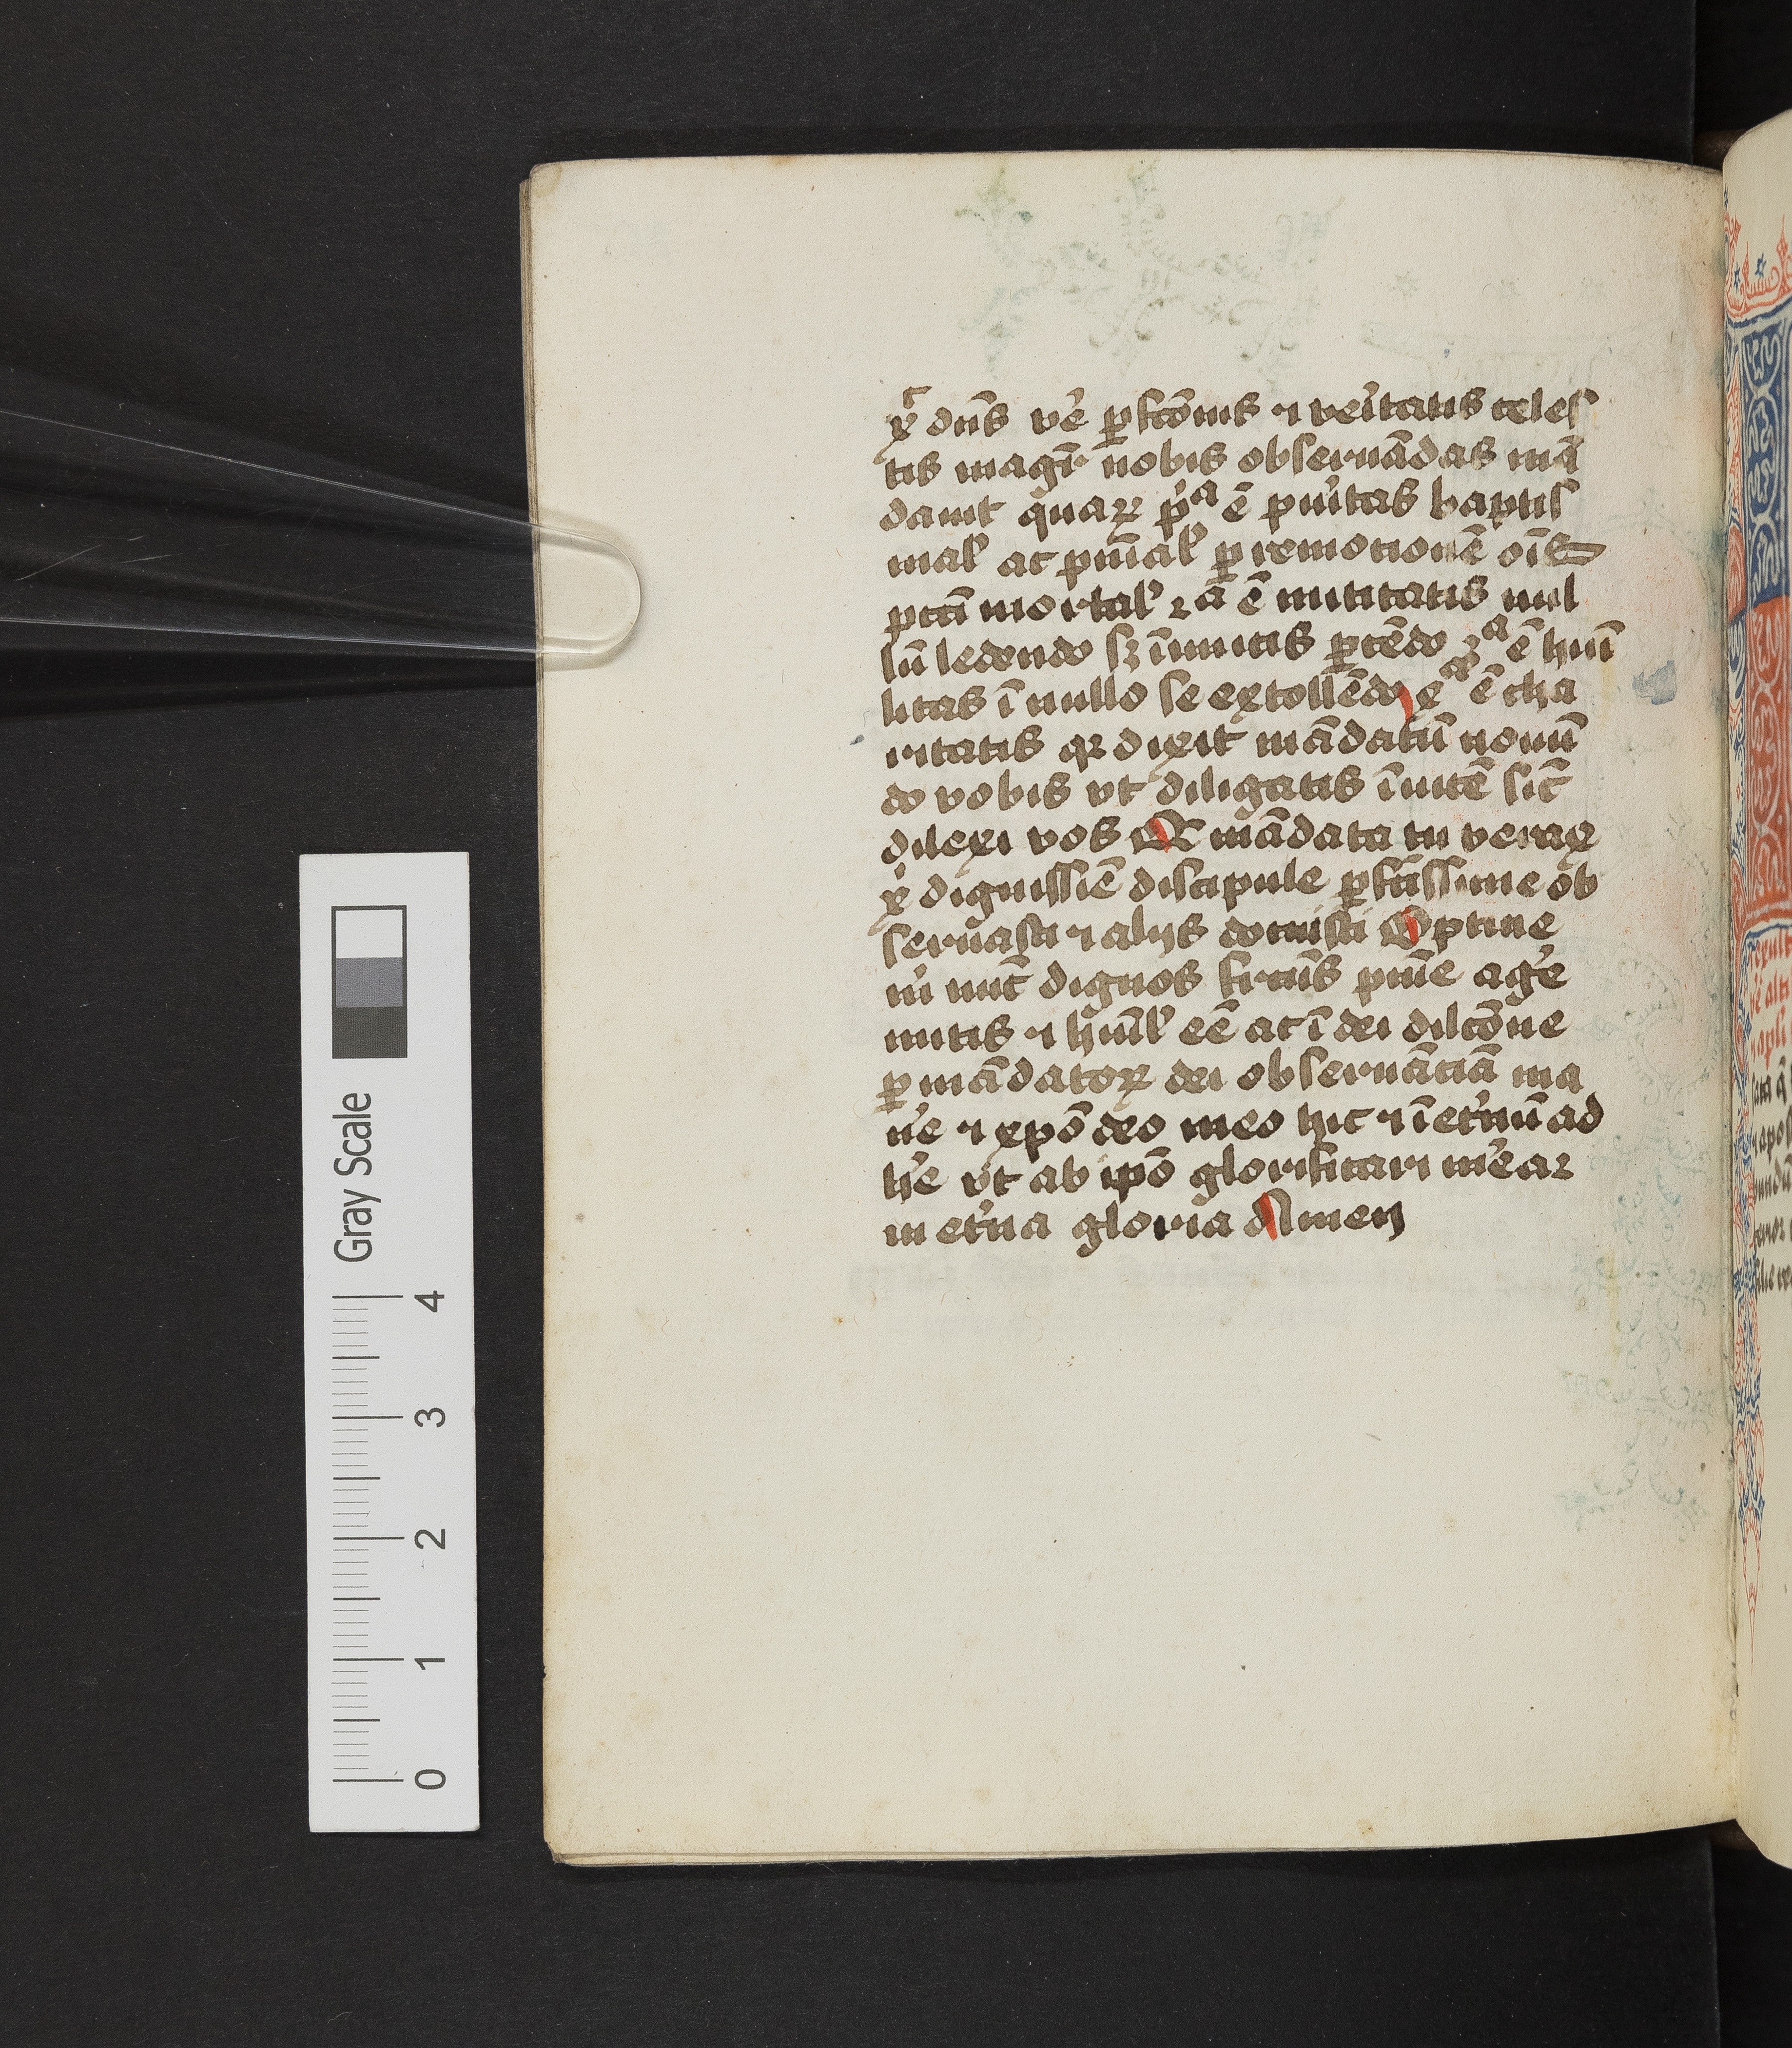 xᷓ dn̄s ve᷑ ꝑfcōnis ⁊ ve᷑itatis celeſ
tis magr̄ nobis obſeruādas mā
dauit quaꝝ p᷑ᵃ ē puritas baptiſ
mal᷑ ac pnīal᷑ ꝑ remotionē oīs
pctī mortal᷑ 2ᵃ ē mititatis nul
lū ledendo ſꝫ īmitis ꝑcēdo 3ᵃ ē humi
litas ī nullo ſe extollēdo 4ᵃ ē cha
ritatis qꝛ dixit mādatū nouū
do vobis vt diligatis īuicē ſic̄
dilexi vos Q mādata tu verax
x᷑ digniſſīe diſcipule ꝑfcāſſime ob
ſeruaſti ⁊ alijs docuiſti Optine
m᷑ nūc dignos frctūs pnīe age᷑
mitis ⁊ hūil᷑ eē ac ī dei dilcōne
ꝑ mādatoꝝ dei obſeruāciā ma
ne᷑ ⁊ xpō deo meo hic ⁊ ī et᷑nū ad
he᷑ vt ab ipō glorificari me᷑ar
in et᷑na gloria Amen
Gray Scale
4
3
2
1
0